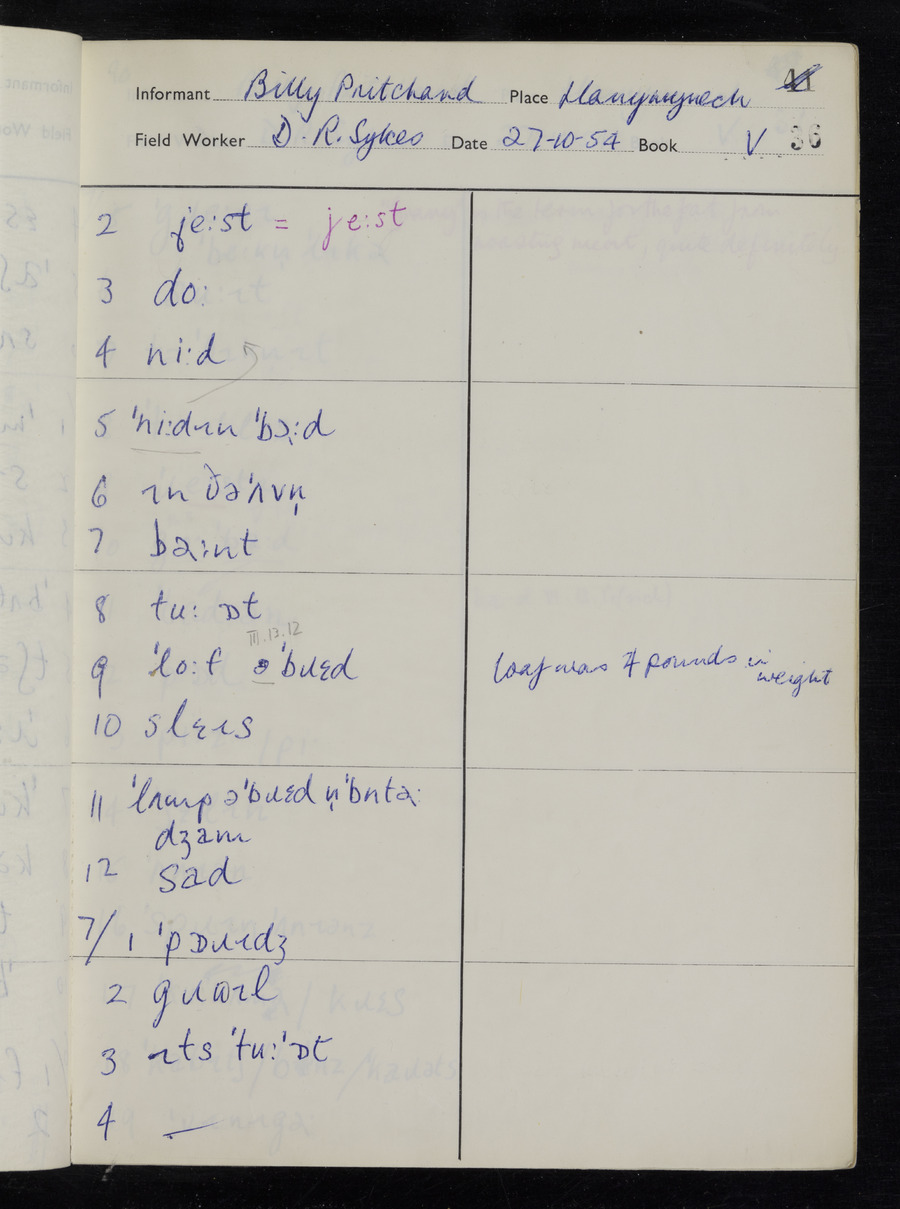 Informant Billy Pritchard Place Llanymynech
Field Worker D. R. Sykes Date 27-10-54 Book V 36
2 je:st = je:st
3 do:
4 ni:d
5 'ni:dɪn 'bɔ̜:d
6 ɪn ðə'ʌvn̩
7 ba:ɪnt
8 tu: ɒt
III.13.12
9 'lo:f ə'bɹɛd loaf was 4 pounds in weight
10 slɛɪs
11 'lʌmp ə'bɹɛd n̩'bʌtə:
dʒam
12 sad
7/1 'pɒɹɪdʒ
2 gɹʊɪl
3 ɪts 'tu:'ɒt
4 —